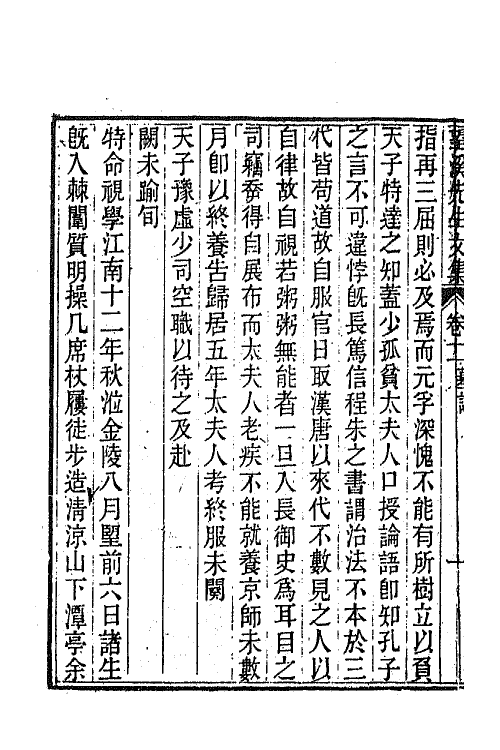 望溪先生文集 卷十一 墓誌 十
指再三屈則必及焉而元孚深愧不能有所樹立以負
天子特達之知蓋少孤貧太夫人口授論語卽知孔子
之言不可違悖旣長篤信程朱之書謂治法不本於三
代皆苟道故自服官日取漢唐以來代不數見之人以
自律故自視若粥粥無能者一旦入長御史爲耳目之
司竊柰得自展布而太夫人老疾不能就養京師未數
月卽以終養告歸居五年太夫人考終服未闋
天子豫虛少司空職以待之及赴
闕未踰旬
特命視學江南十二年秋涖金陵八月朢前六日諸生
旣入棘闈質明操几席杖屨徒步造淸涼山下潭亭余